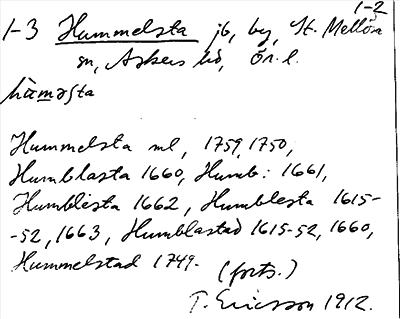 1-2
1-3 Hummelsta jb, by, St. Mellösa
sn, Askers hd, Ör. l.
hùməsta
Hummelsta ml, 1759, 1750,
Humblasta 1660, Humb: 1661,
Humblesta 1662, Humblesta 1615-
-52, 1663, Humblastad 1615-52, 1660,
Hummelstad 1749.
(forts.)
T. Ericsson 1912.